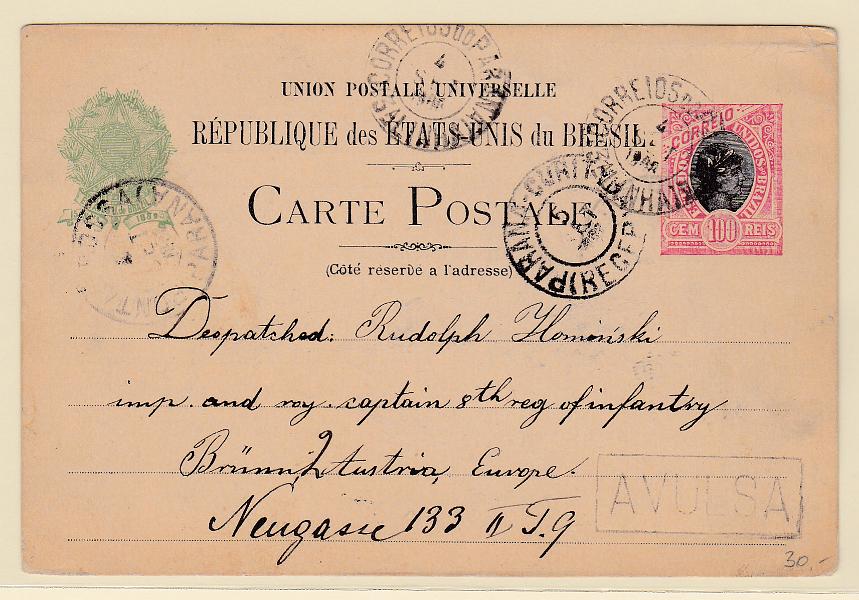 UNION POSTALE UNIVERSELLE
RÉPUBLIQUE des ÉTATS-UNIS du BRÉSIL
CARTE POSTALE
(Côté réservé a l'adresse)
CORREIOS DO PARANA
4
CORREIOS
4
CORREIO
ESTADOS UNIDOS DO BRAZIL
CEM 100 REIS
PARANA
(RECEP
PARANA
Despatched: Rudolph Homiński
imp. and roy. captain 8th reg of infantry
Brünn, Austria, Europe.
Neugasse 133 II T. 9
AVULSA
30.-